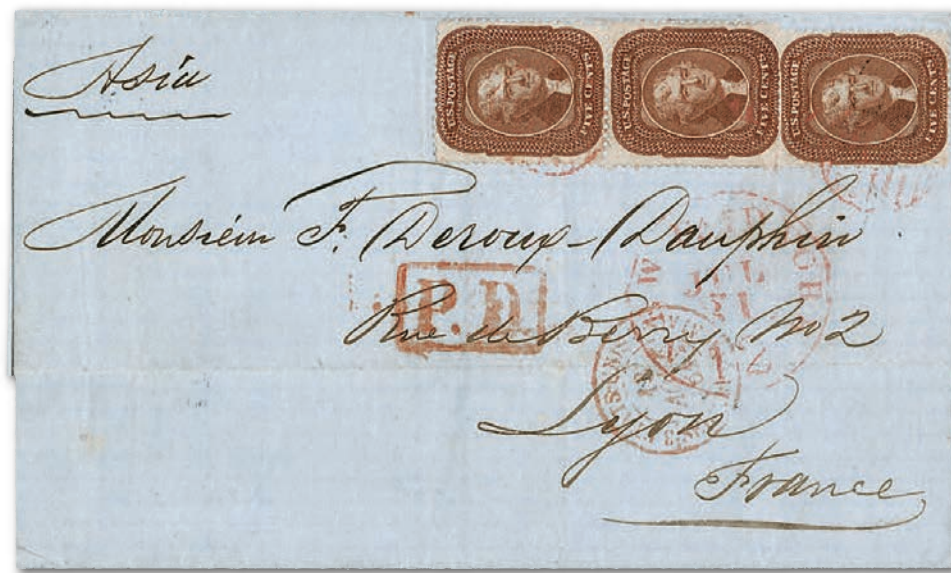 Asia
U.S. POSTAGE FIVE CENTS
U.S. POSTAGE FIVE CENTS
U.S. POSTAGE FIVE CENTS
Monsieur F. Deroux-Dauphin.
P.D.
JUL
Rue de Berry No 2
Lyon
France